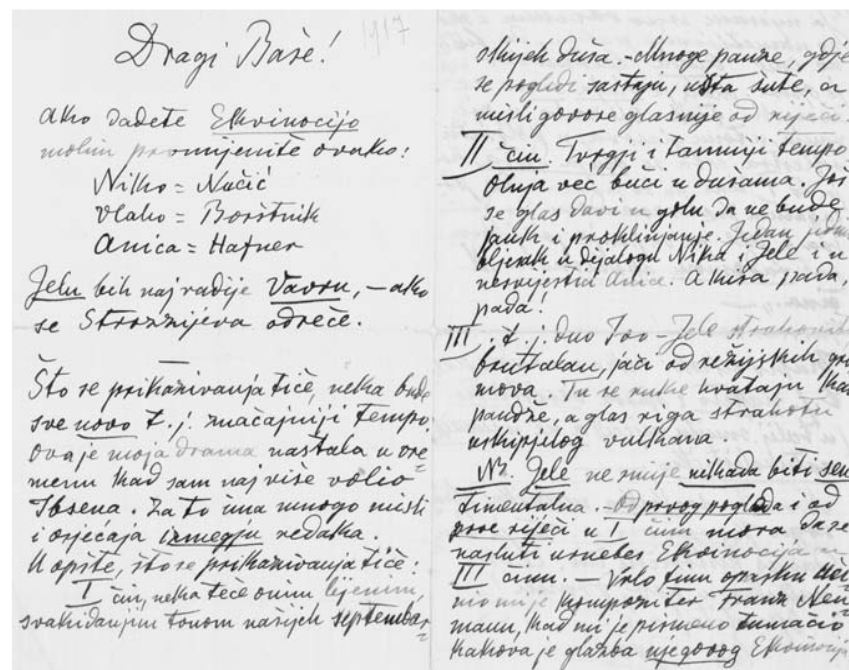 Dragi Baše!
1917
ako dadete Ekvinocijo
molim promijenite ovako:
Niko = Nučić
Vlaho = Borštnik
Anica = Hafner
Jelu bih najradije Vavru, – ako
se Strozzijeva odreče.
Što se prikazivanja tiče, neka bude
sve novo t. j. značajniji tempo.
Ova je moja drama nastala u vre=
menu kad sam najviše volio
Ibsena. Zato ima mnogo misli
i osjećaja izmegju redaka.
U opšte, što se prikazivanja tiče:
I čin, neka teče onim lijenim,
svakidanjim tonom našijeh septembar=
skijeh duša. – Mnoge pauze, gdje
se pogledi sastaju, usta šute, a
misli govore glasnije od riječi.
II čin. Tvrgji i tamniji tempo
Oluja već buči u dušama. Još
se glas davi u grlu da ne bude
jauk i proklinjanje. Jedan
bljesak u dijalogu Nika i Jele i u
nesvijestici Anice. A kiša pada,
pada!
III. t. j. duo Ivo – Jele
brutalan, jači od režijskih gro
mova. Tu se ruke hvataju kao
pandže, a glas riga strahotu
uskipjelog vulkana.
NB. Jele ne smije nikada biti sen
timentalna. – Od prvog pogleda i od
prve riječi u I činu mora da se
nasluti Ekvinocija u
III činu. – Vrlo finu opasku uči=
nio mi je kompozitor Franz Neu=
mann, kad mi je pismeno tumačio
kakova je glazba njegovog Ekvinocija